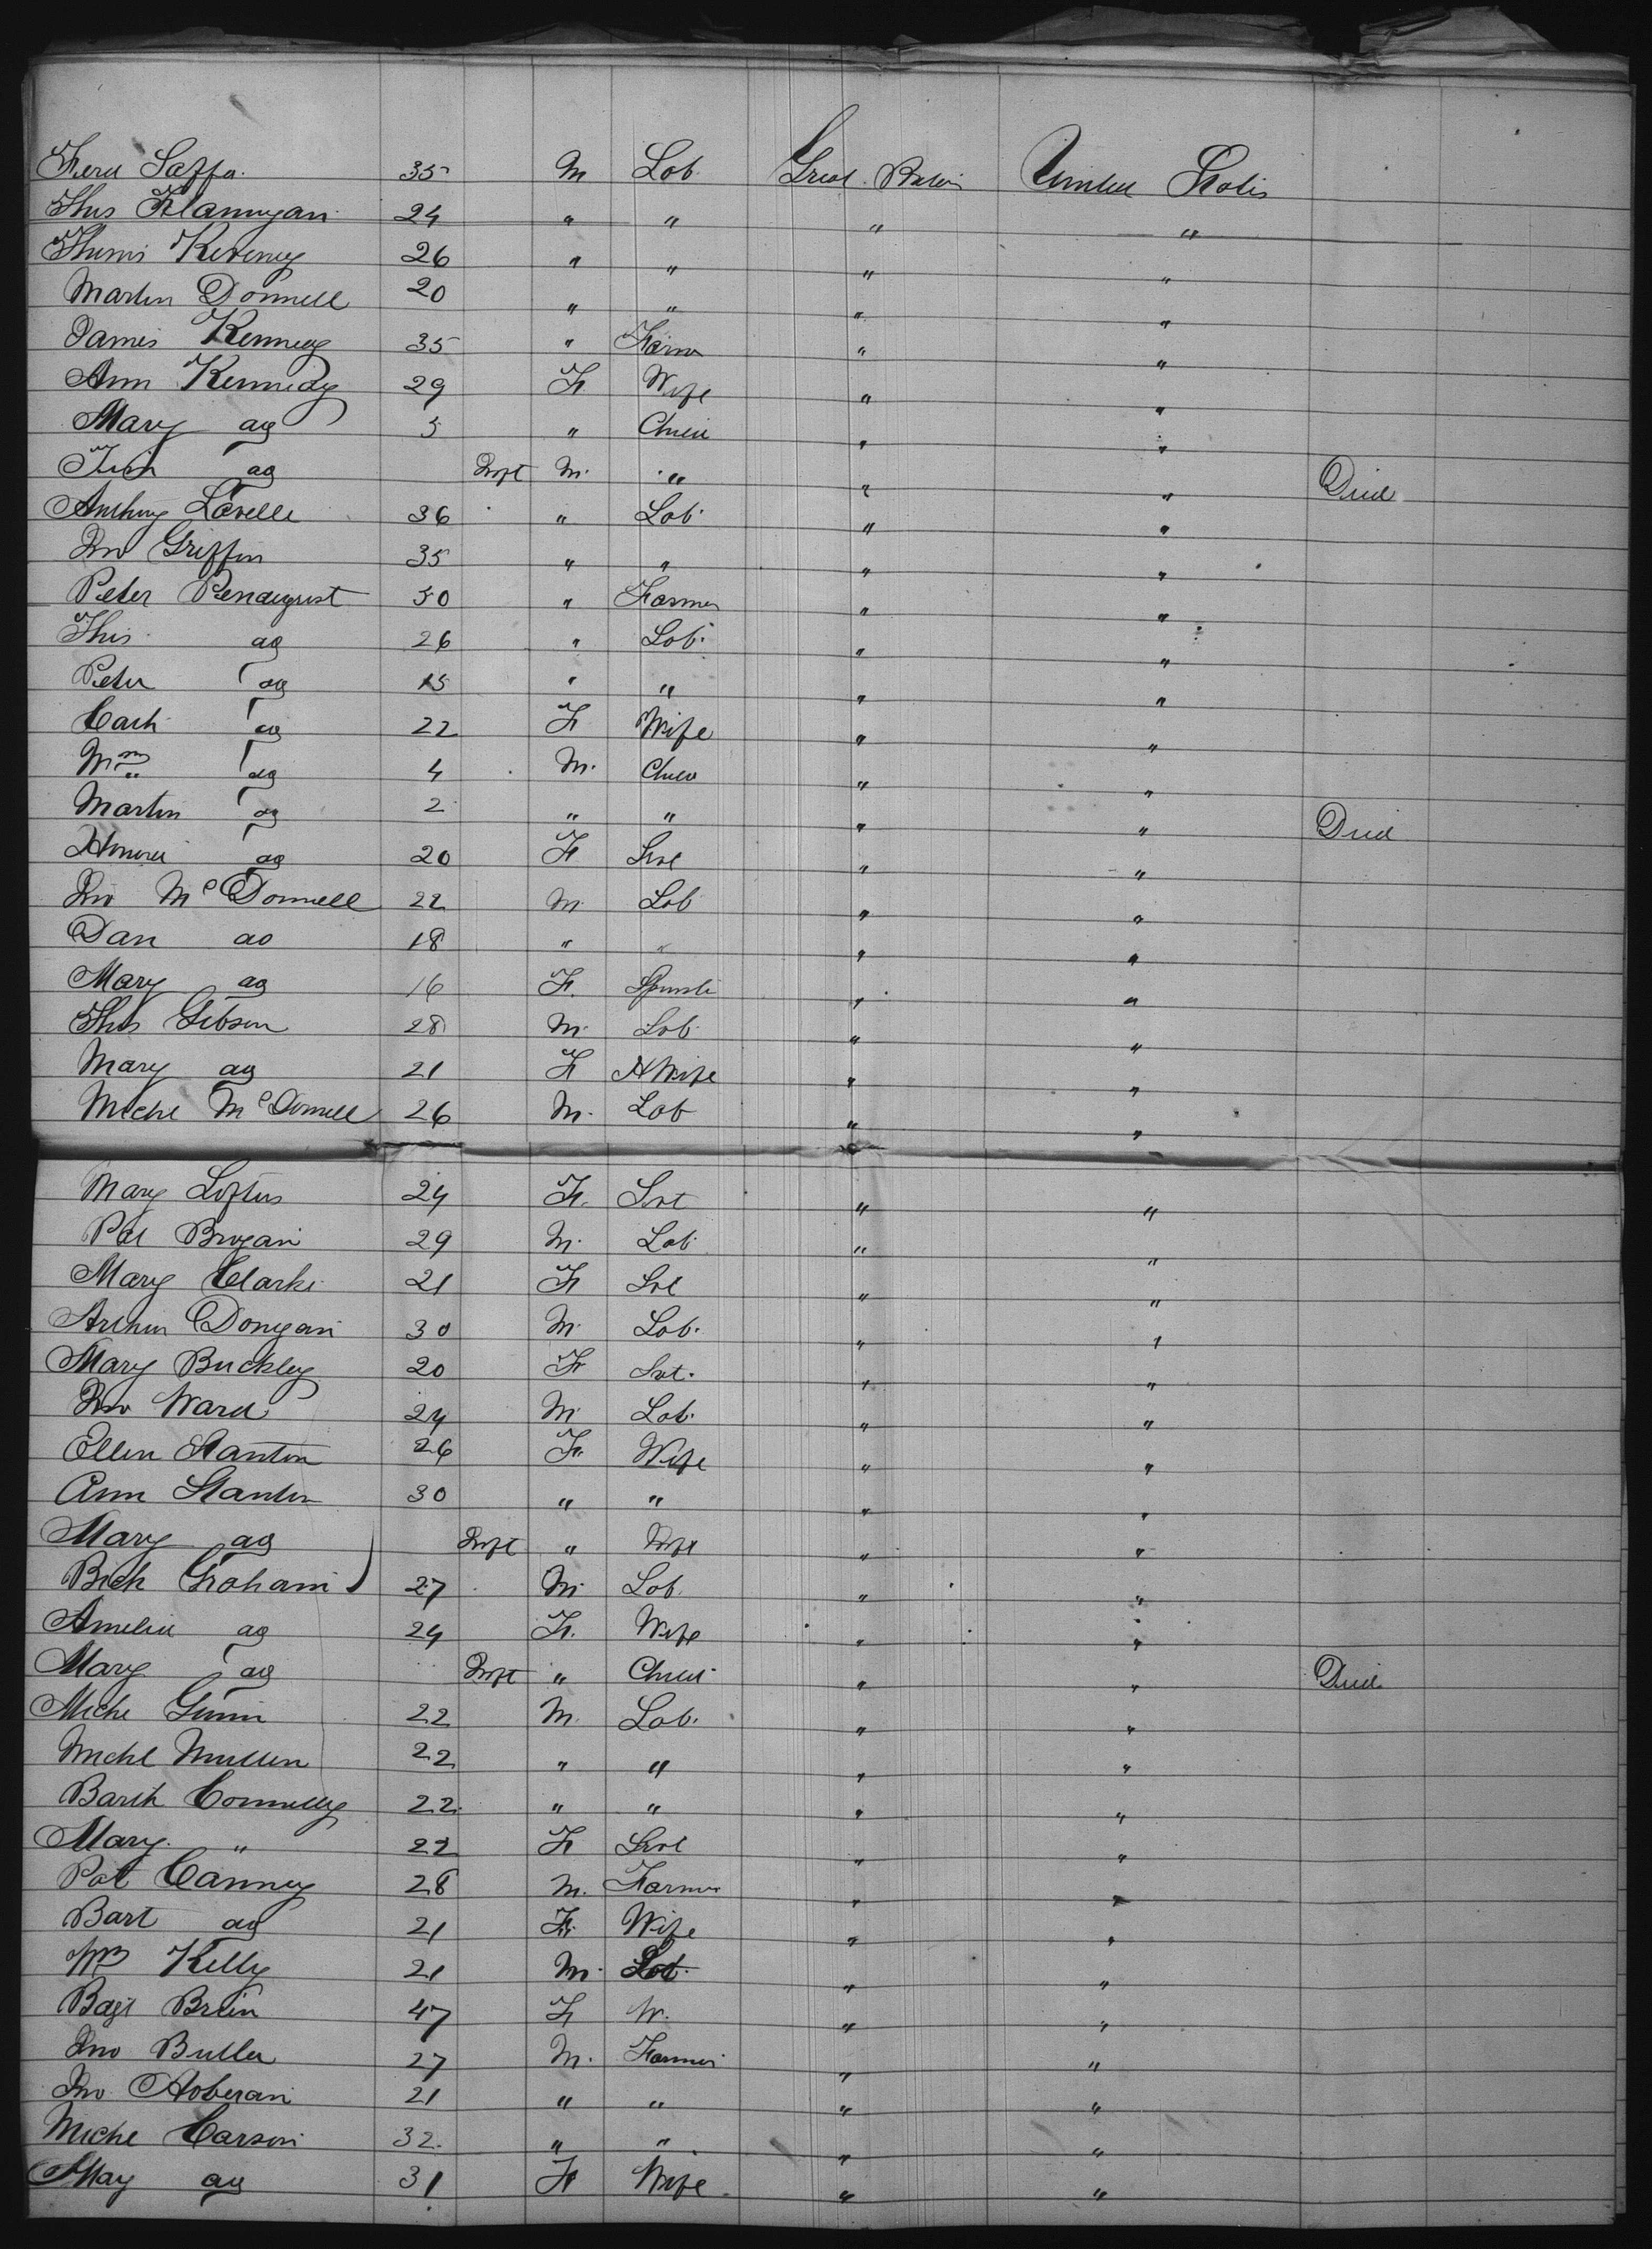 35 M Lab Great Britain United States
Thos Flannigan 24 " " " "
26 " " " "
Martin Donnell 20 " " " "
James Kennedy 35 " Farmr " "
Ann Kennedy 29 F. Wife " "
Mary do 5 " Child " "
do Inft M. " " " Died
Anthony Lavelle 36 " Lab. " "
Jno Griffin 35 " " " "
Peter Pendegrast 50 " Farmer " "
Thos do 26 " Lab. " "
Peter do 15 " " " "
Cath do 22 F Wife " "
Wm do 4 M. Child " "
Martin do 2 " " " " Died
Honora do 20 F Svt " "
Jno McDonnell 22 M Lab " "
Dan do 18 " " " "
Mary do 16 F. " "
Thos Gibson 28 M. Lab " "
Mary do 21 F Wife " "
Michl McDonnell 26 M. Lab " "
Mary Loftus 24 F. Svt " "
Pat Brogan 29 M. Lab " "
Mary Clarke 21 F Svt " "
Arthur Donegan 30 M. Lab. " "
Mary Buckley 20 F Svt. " "
Jno Ward 24 M Lab. " "
Ellen Stanton 26 F. Wife " "
Ann Stanton 30 " " " "
Mary do Inft " Inft " "
Graham 27 M. Lab. " "
Amelia do 24 F. Wife " "
Mary do Inft " Child " " Died
Michl 22 M. Lab. " "
Michl Mullen 22 " " " "
Barth Connelly 22 " " " "
Mary " 22 F Svt " "
Pat Canney 28 M. Farmer " "
do 21 F. Wife " "
Wm Kelly 21 M. Lab. " "
47 F W. " "
Jno Butler 27 M. Farmer " "
Jno 21 " " " "
Michl Carson 32 " " " "
May do 31 F Wife " "